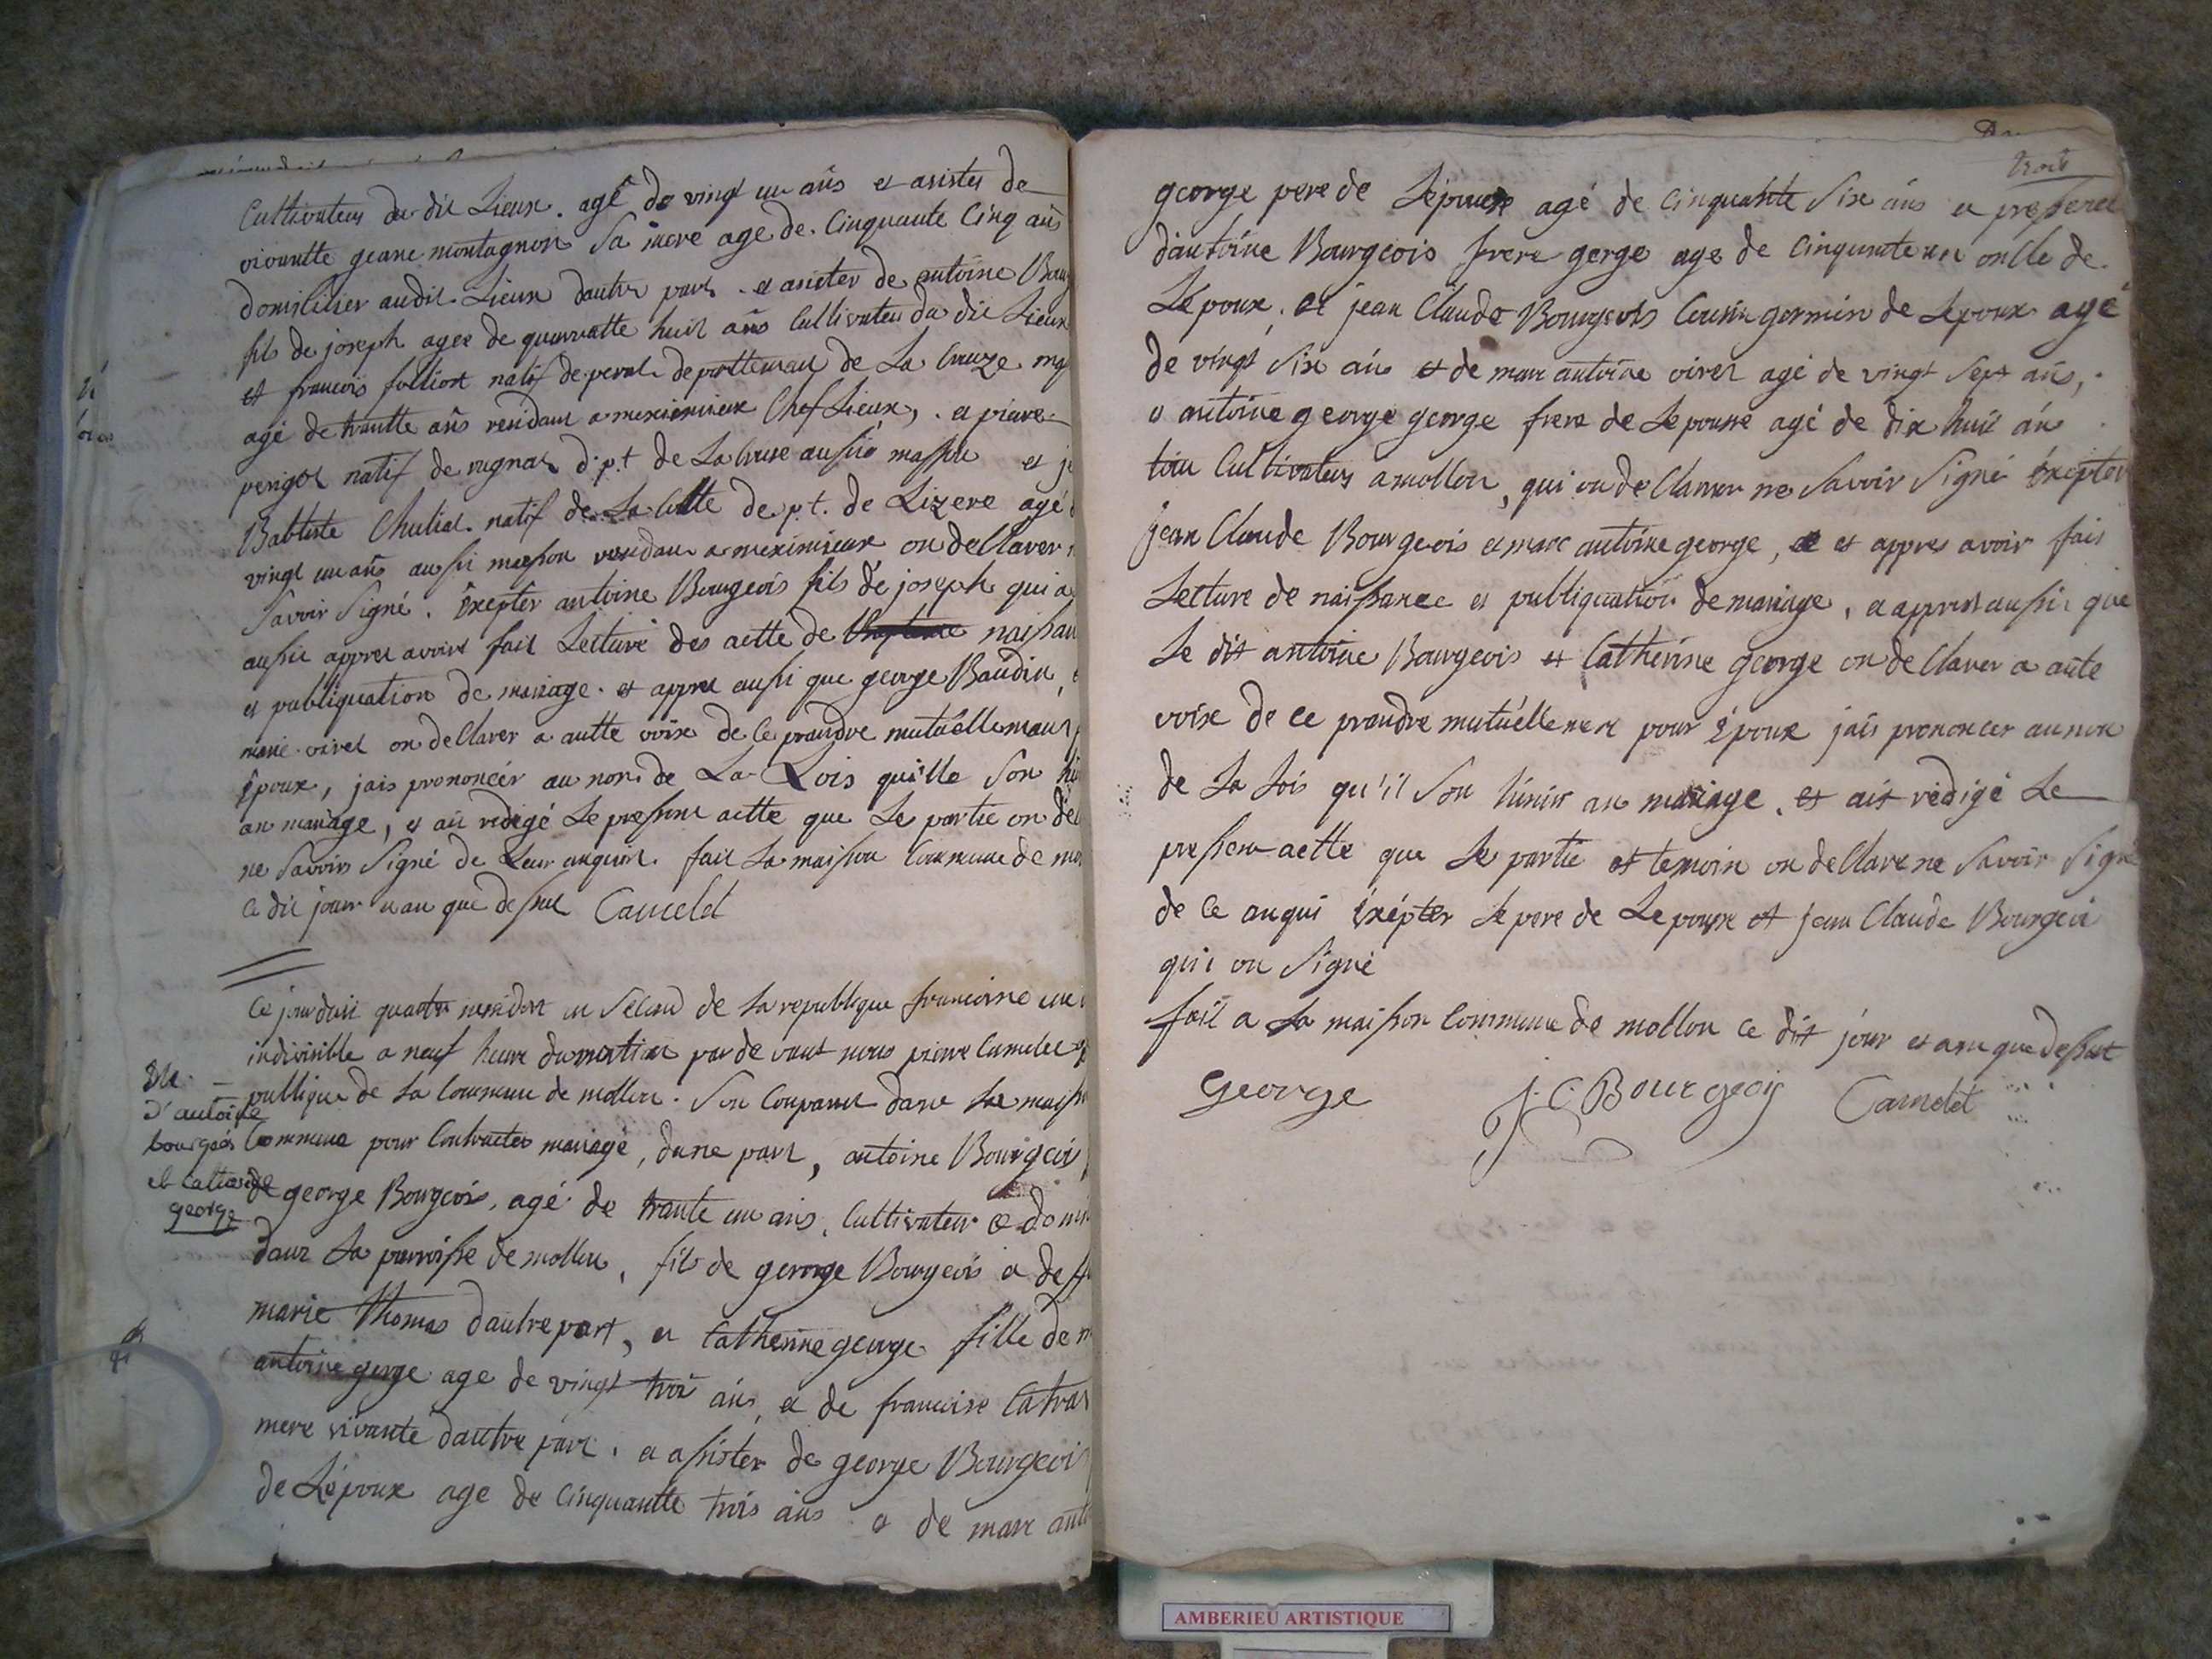 Cultivateur du dit Lieux. agé de vingt un ans et asister de
vivantte geane montagnon sa mere age de. Cinquante Cinq ans
domiciliser audit Lieux dautre part. et asister de antoine
fils de joseph agee de quarratte huit ans Cultivateu du dit Lieux
et francois natif de departtement de La Creuze
agé de trantte ans residant a meximieux Chef Lieux, . et piere
perigot natif de d.p.t de La Creuse aussie
Babtiste natif de La de p.t. de Lizere agé
vingt un ans aussi a meximieux on dellarer
Savoir Signé. Éxepter antoine Bourgeois fils dé joseph qui a
aussie appres avoire fait Lecture des actte de
et publiquation de mariage. et appre aussi que george Baudin,
marie on dellarer a autte voixe de Ce prandre mutuellemant
Époux, jais prononcér au nom de La Lois quille Son
an mariage, et ait redigé Le pressent actte que Le partie on
ne Savoire Signé de Leur anquire. fait La maison Commune de
Ce dit jour et an que dessut Camelet
Ce jourduit quatre an Second de La republique francoise une
indivisible a neuf heure du matin par de vant nous piere Camelet
publique de La Commune de mollon. Son Conparut dans La
Commune pour Contracter mariage, dune part, antoine Bourgeois
de george Bourgeois, agé de trante un ans. Cultivateur et
dant La parroisse de mollon, fils de george Bourgeois a
marie Thomas dautre part, et Catherine george fille de
antoine gerge age de vingt trois ans, et de francoise
mere vivante dautre part. et assister de george Bourgeois
de Lépoux age de Cinquantte trois ans et de marc
d'antoine
bourgeois
et
george
trois
george pere de Lépouse agé de Cinquante Six ans et
dantoine Bourgeois frere gerge age de Cinquante un onlle de
Lépoux. et jean Claude Bourgeois Cousin germin de Lepoux agé
de vingt Six ans et de marc antoine agé de vingt Sept ans,
et antoine george george frere de Lepouse agé de dix huit ans
tous Cultivateurs a mollon, qui on dellarer ne Savoir Signé Éxepter
jean Claude Bourgeois et marc antoine george, et appres avoir fait
Lecture de naissance et publiquation de mariage, et appres aussi que
Le dit antoine Bourgeois et Catherine george on dellarer a aute
voix de Ce prandre mutuellement pour Époux jais prononcer au nom
de La Lois qu'il Son hunis an mariage. et ait rédigé Le
pressent actte que Le partie et temoin on dellare ne Savoir Signé
de Ce anqui Éxépter Le pere de Lepouse et jean Claude Bourgeoi
qui on Signé
fait a La maison Commune de mollon Ce dit jour et an que dessut
George J. C. Bourgeois Camelet
AMBERIEU ARTISTIQUE